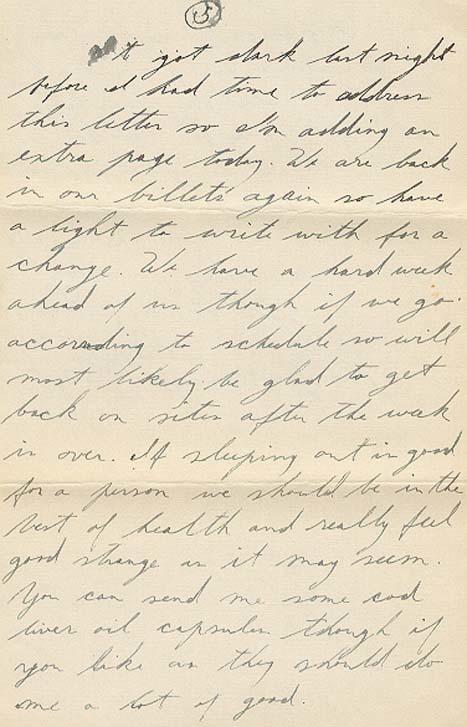 5
It got dark last night
before I had time to address
this letter so I'm adding an
extra page today. We are back
in our billets again so have
a light to write with for a
change. We have a hard week
ahead of us though if we go
according to schedule so will
most likely be glad to get
back on sites after the week
is over. If sleeping out is good
for a person we should be in the
best of health and really feel
good strange as it may seem.
You can send me some cod
liver oil capsules though if
you like as they should do
me a lot of good.